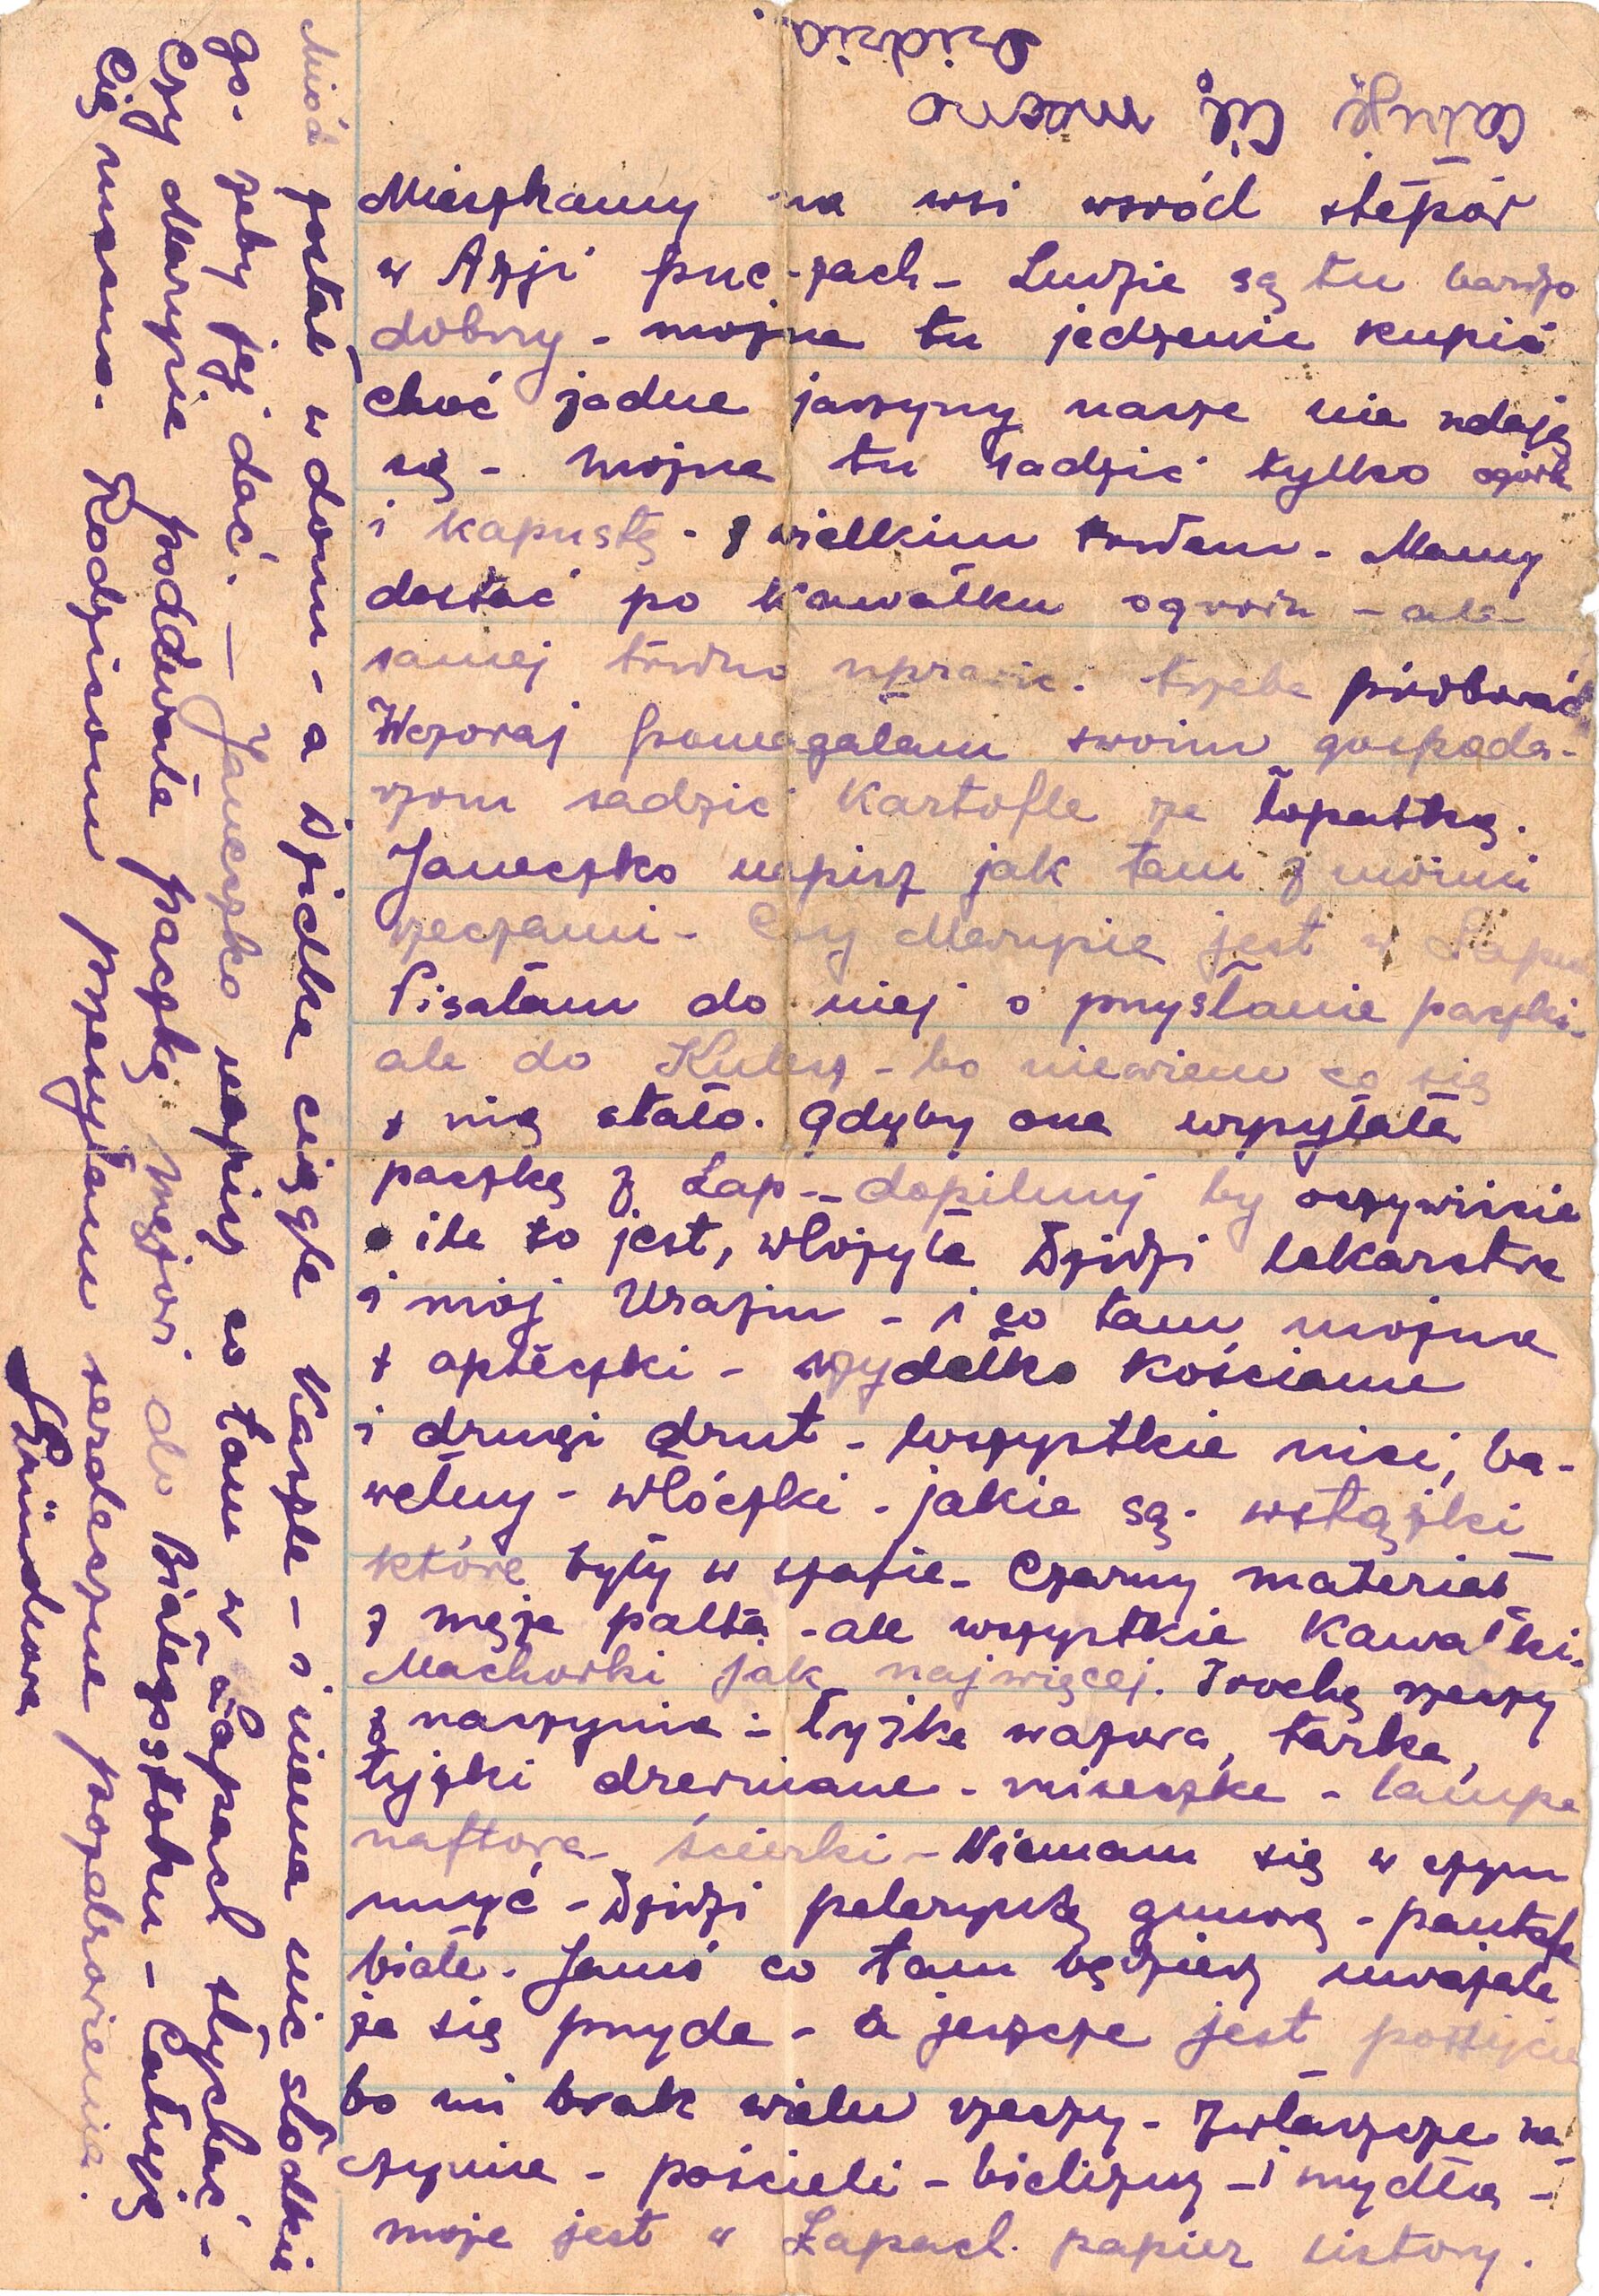 Mieszkamy na wsi wsród stepów
w Azji przec-zach - Ludzie są tu bardzo
dobrzy - można tu jedzenie kupić
choć żadne jarzyny nasze nie udają
się - można tu sadzić tylko ogórk
i kapustę - z wielkim trudem - Mamy
dostać po kawałku ogrodu - ale
samej trudno uprawić. trzeba próbować
Wczoraj pomagałam swoim gospoda-
rzom sadzić kartofle ze łopatką.
Janeczko napisz jak tam z moimi
rzeczami - Czy Marysia jest w Łapach
Pisałam do niej o przysłanie paczki -
ale do Kulesz - bo niewiem co się
z nią stało. Gdyby ona wysyłała
paczkę z Łap - dopilnuj by oczywiście
o ile to jest, włożyła Dzidzi lekarstwa
i mój Urazin - i co tam można
z apteczki - szydełko kościane
i drugi drut - wszystkie nici, ba-
wełny - włóczki - jakie są - wstążki
które były w szafie - Czarny materiał
z męża palta - ale wszystkie kawałki.
Machorki jak najwięcej. Trochę rzeczy
z naczynia - łyżkę wazową, tarkę,
łyżki drewniane - miseczkę - lampę
naftową - ścierki - Niemam się w czym
myć - Dzidzi pelerynkę gumową - pantofe
białe. Januś co tam będziesz uważała
że się przyda - a jeszcze jest
bo mi brak wielu rzeczy - Zwłaszcza na-
czynia - pościeli - bielizny - i mydła -
moje jest w Łapach papier listowy.
Miód został w domu - a Dzidka ciągle kaszle - i niema nic słodkie
go - żeby jej dać. - Janeczko napisz co tam w Łapach słychać -
Czy Marysia poddawała paczkę mężowi do Białegostoku - Całuję
Cię mocno. Rodzicom przesyłam serdeczne pozdrowienia.
Całuję Cię mocno
Dzidzia.